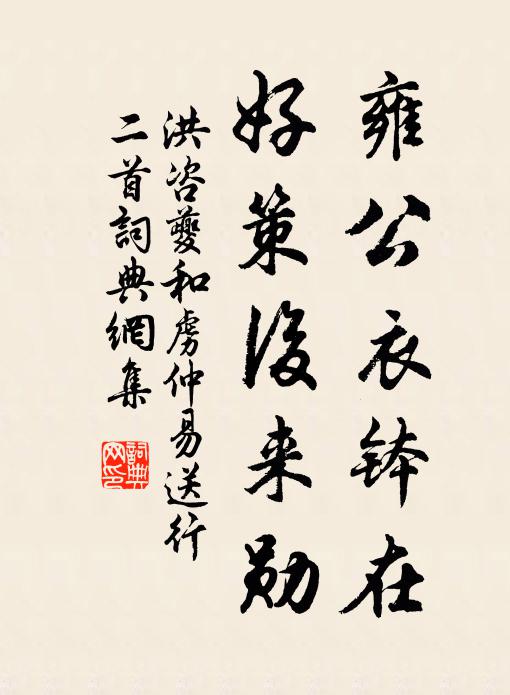 雍公衣钵在
好策後来勋
洪咨夔和虏仲易送行
二首詞典網集
詞典網印